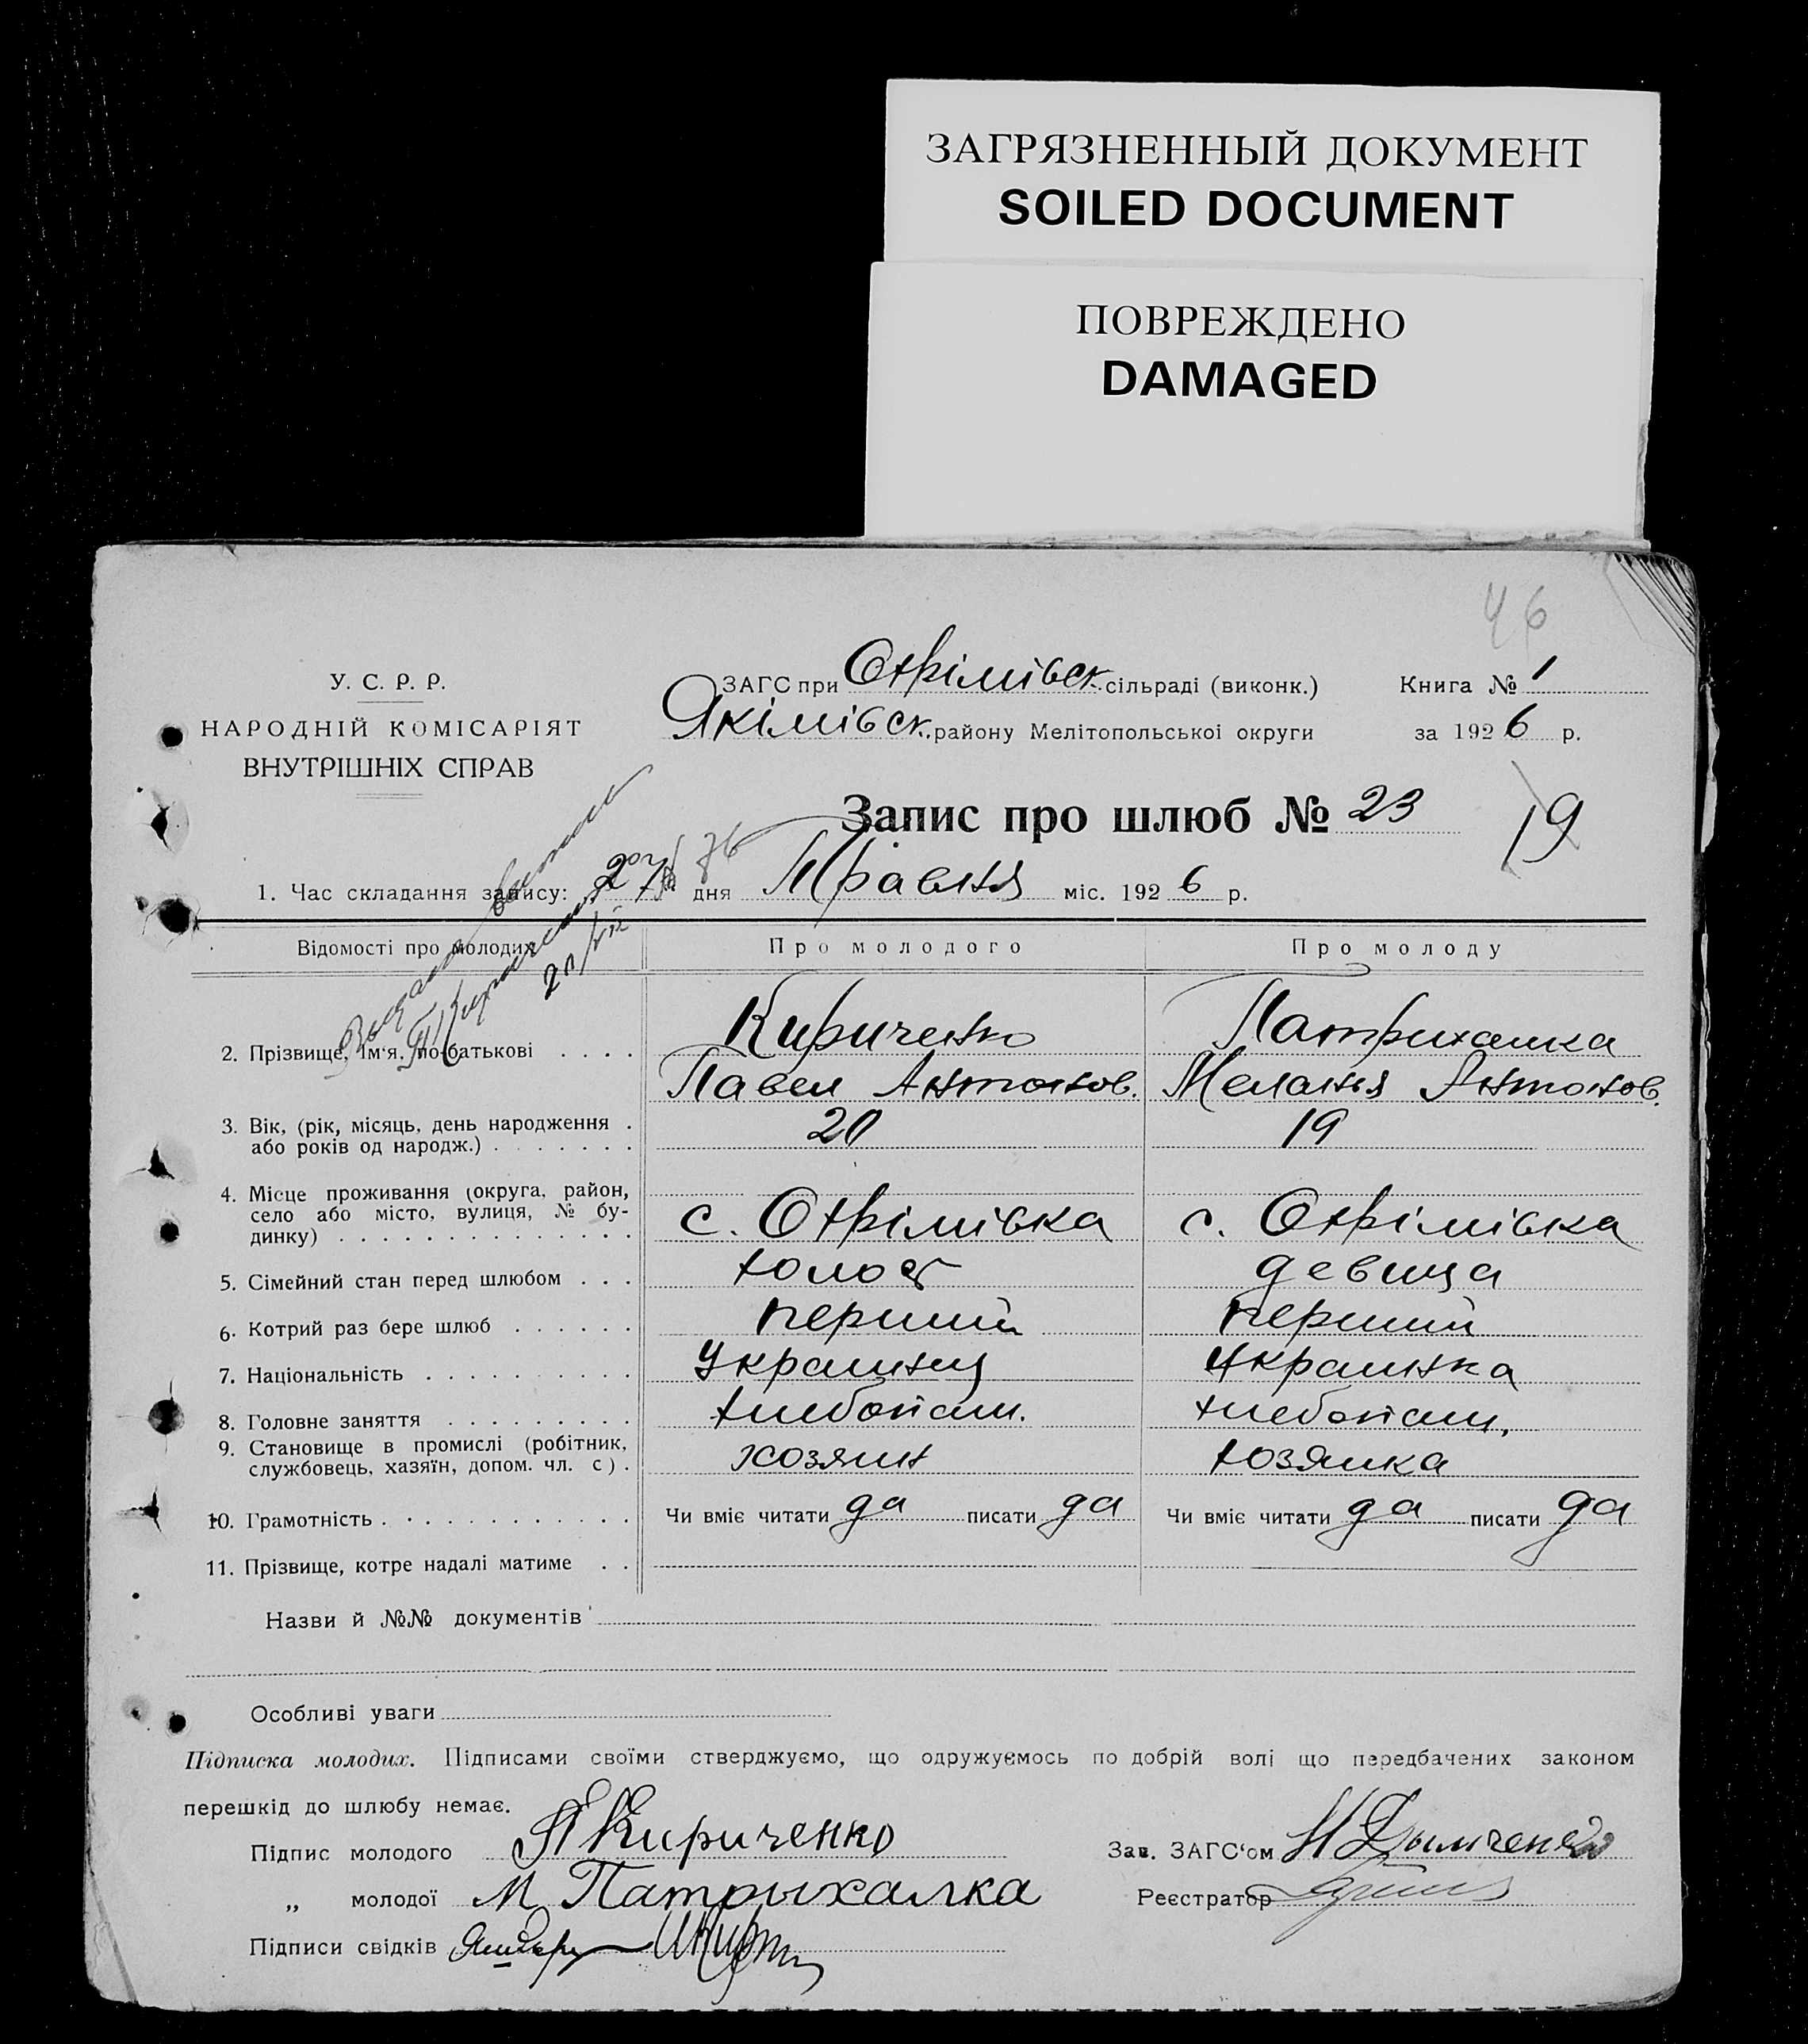 ЗАГРЯЗНЕННЫЙ ДОКУМЕНТ
SOILED DOCUMENT
ПОВРЕЖДЕНО
DAMAGED
46
У. С. Р. Р.
НАРОДНІЙ КОМІСАРІЯТ
ВНУТРІШНІХ СПРАВ
ЗАГС при Охрімівск. сільраді (виконк.)
Якімівск. району Мелітопольської округи
Книга № 1
за 1926 р.
Запис про шлюб № 23
19
1. Час складання запису: 27 дня Травня міс. 1926 р.
Відомості про молодих
Про молодого
Про молоду
2. Прізвище, ім'я, по-батькові . . . .
Кириченко
Павел Антонов.
Патрихалка
Меланья Антонов.
3. Вік, (рік, місяць, день народження .
або років од народж.) . . . . . . .
20
19
4. Місце проживання (округа, район,
село або місто, вулиця, № бу-
динку) . . . . . . . . . . . . . .
с. Охрімівка
с. Охрімівка
5. Сімейний стан перед шлюбом . . .
холост
девица
6. Котрий раз бере шлюб . . . . . .
перший
перший
7. Національність . . . . . . . . . .
Украинец
Украинка
8. Головне заняття . . . . . . . . .
хлебопаш.
хлебопаш,
9. Становище в промислі (робітник,
службовець, хазяїн, допом. чл. с) .
хозяин
хозяика
10. Грамотність . . . . . . . . . . . .
Чи вміє читати да писати да
Чи вміє читати да писати да
11. Прізвище, котре надалі матиме . .
Назви й №№ документів
Особливі уваги
Підписка молодих. Підписами своїми стверджуємо, що одружуємось по добрій волі що передбачених законом
перешкід до шлюбу немає.
Підпис молодого П Кириченко
Зав. ЗАГС'ом
„ молодої М Патрыхалка
Реєстратор
Підписи свідків